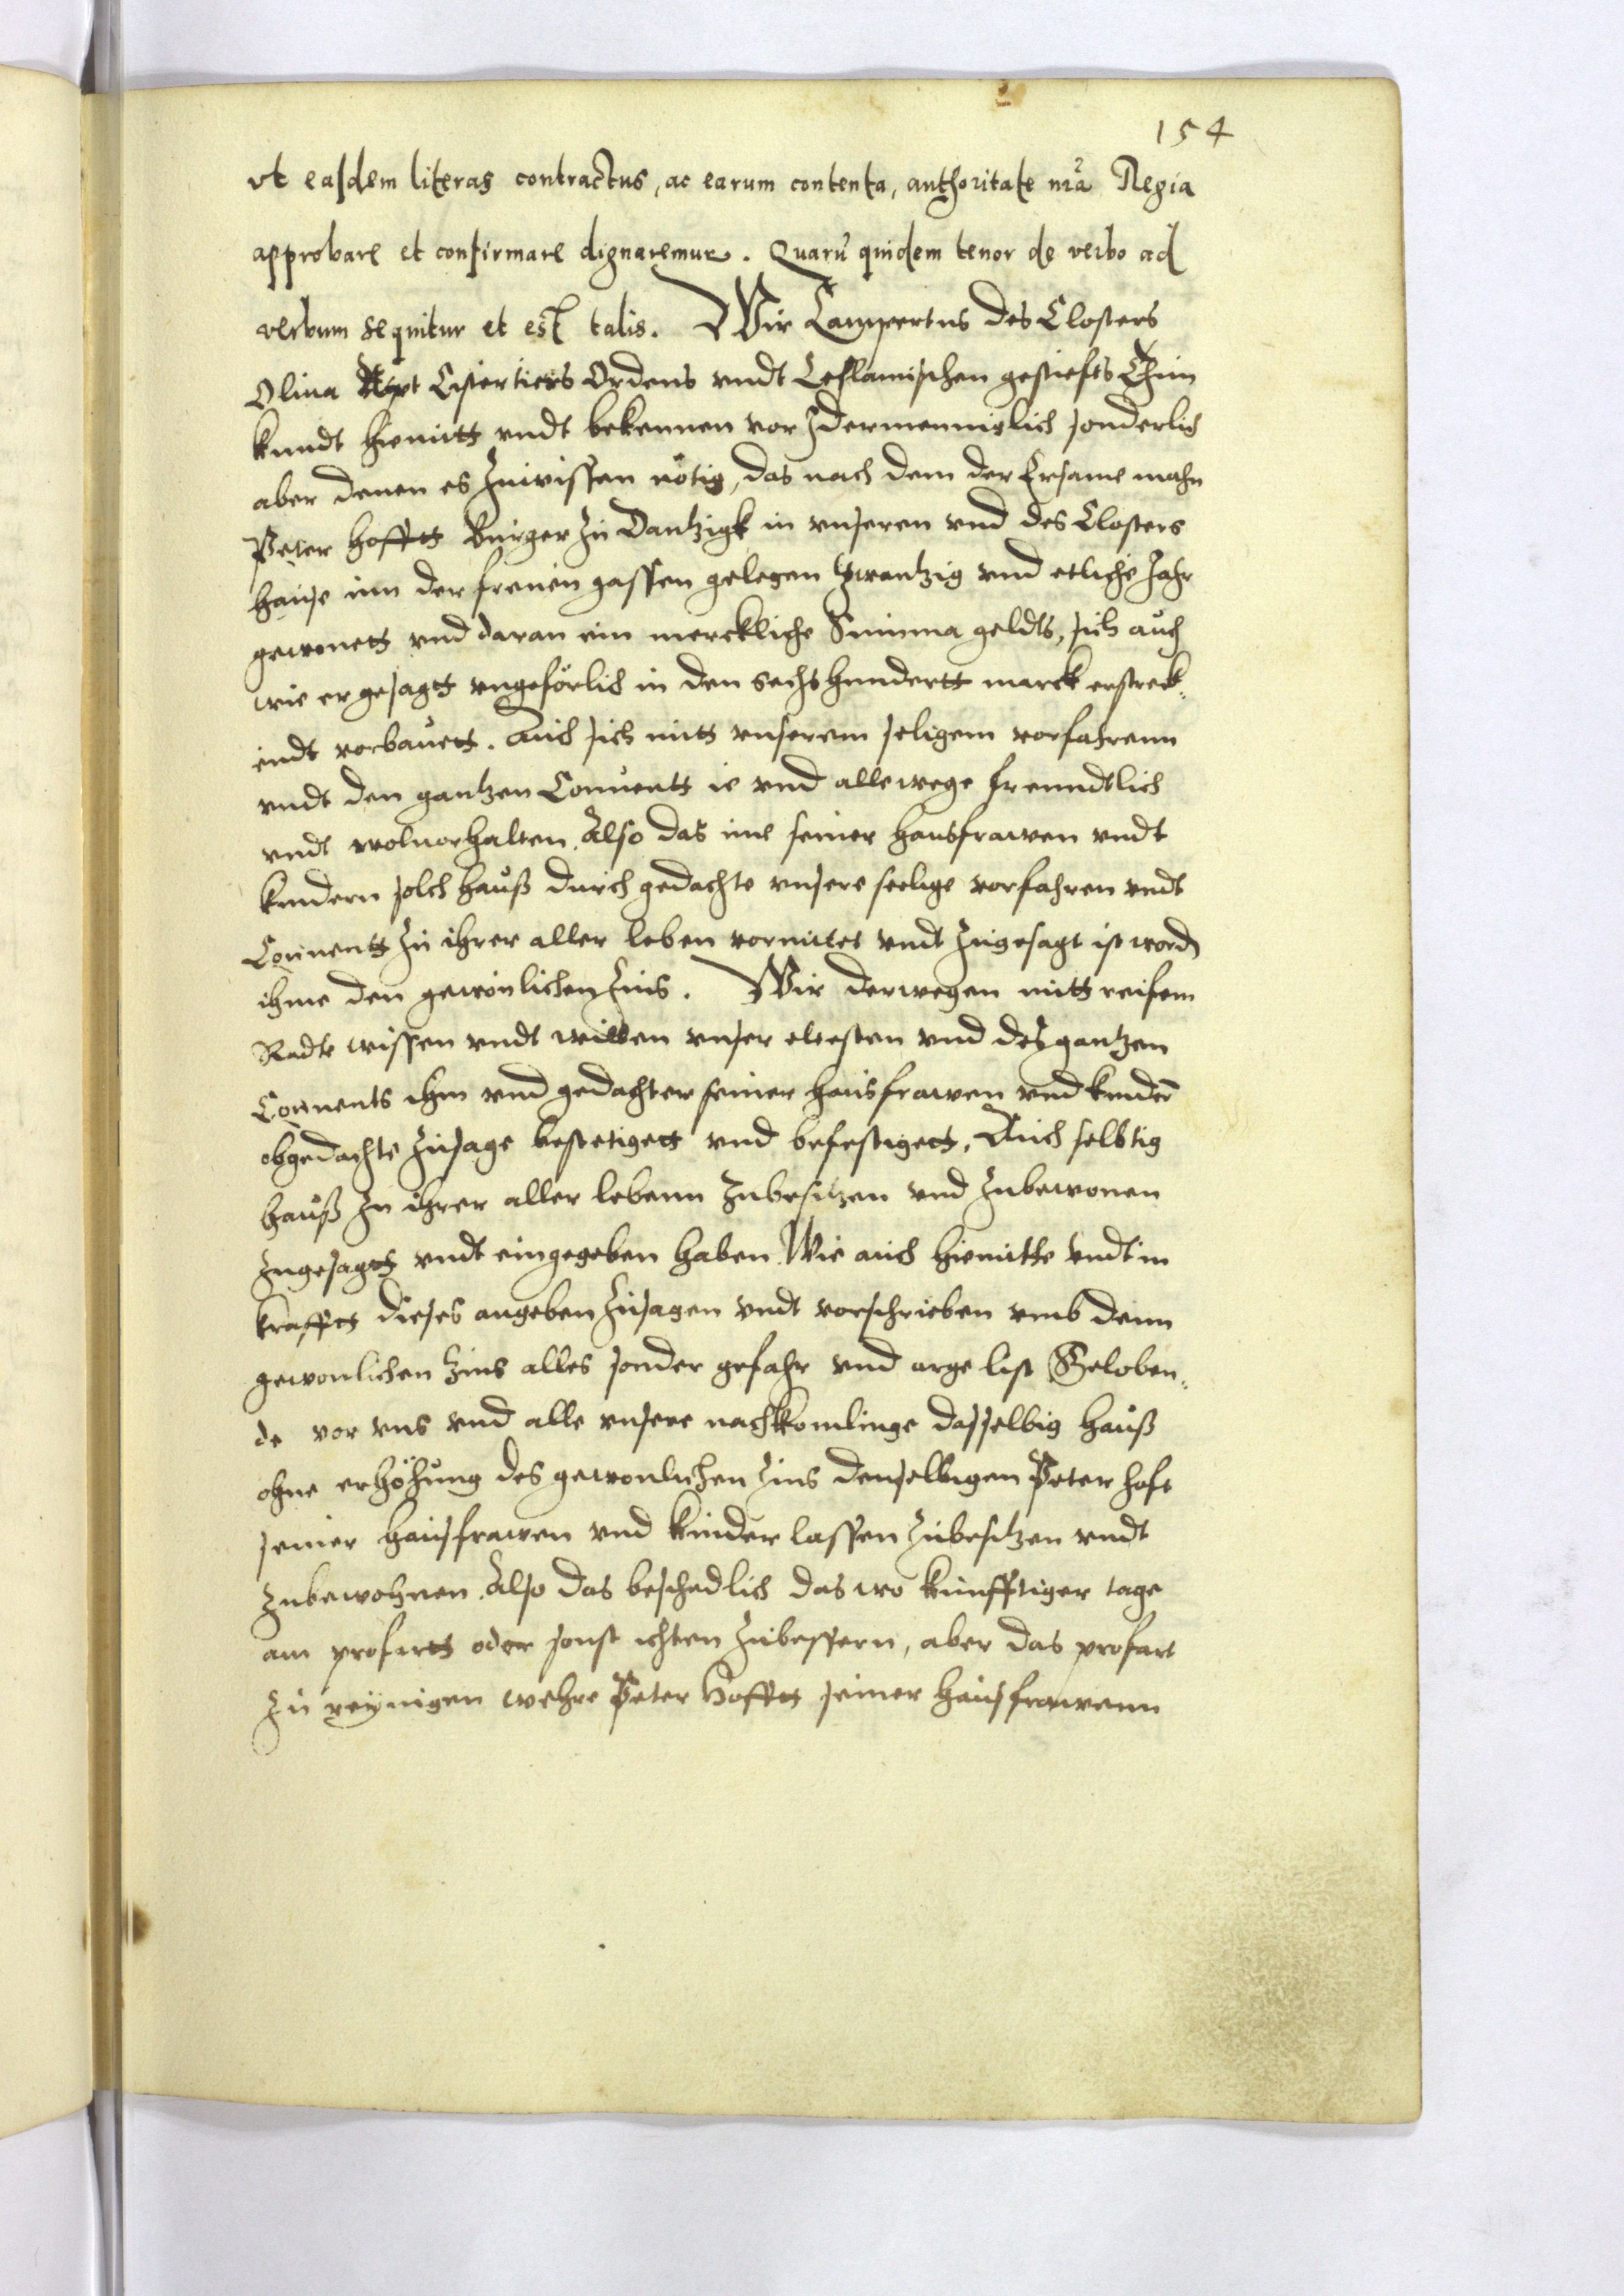 154
vt easdem literas contractus, ac earum contenta, authoritate nrã Regia
approbare et confirmare dignaremur. Quarũ quidem tenor de verbo ad
verbum sequitur et est talis. Wir Lampertus des Closters
Oliua Apt Cistertiers Ordens vndt Leslawischen gestiefts Thun
kundt hiemitt vndt bekennen vor Jdermenniglich sonderlich
aber denen es zuwissen nötig, das nach dem der Ersame mahn
Peter Hofftt Burger zu Dantzigk in vnseren vnd des Closters
hause inn der frauen gassen gelegen zwantzig vnd etliche Jahr
gewonett vnd daran ein merckliche Summa geldts, sich auch
wie er gesagtt vngeförlich in den sechs hundertt marck erstreck-
endt vorbauett. Auch sich mitt vnserem seligem vorfahrenn
vndt den gantzen Conuentt ie vnd allewege freundtlich
vndt woluorhalten. Also das ime seiner hausfrawen vndt
kindern solch hauß durch gedachte vnsere seelige vorfahren vndt
Conuentt zu ihrer aller leben vormitet vndt zugesagt ist word
ihme den gewönlichen zins. Wir derwegen mitt reifem
Radte wissen vndt willen vnser elesten vnd des gantzen
Conuents ihm vnd gedachter seiner hausfrawen vnd kinderē
obgedachte zusage bestetigett vnd befestigett, Auch selbtig
hauß zu ihrer aller lebenn zubesitzen vnd zubewonen
zugesagtt vndt eingegeben haben. Wie auch hiemitte vndt in
krafftt dieses angeben zusagen vndt vorschrieben vmb denn
gewonlichen zins alles sonder gefahr vnd arge list Geloben-
de vor vns vnd alle vnsere nachkomlinge dasselbig hauß
ohne erhöhung des gewonlichen zins denselbigen Peter Hoft
seiner hausfrawen vnd kinder lassen zubesitzen vndt
zubewohnen. Also das beschedlich das wo kunfftiger tage
am profartt oder sonst ichten zubessern, aber das profart
zu reÿnigen wehre Peter Hofftt seiner hausfrawenn